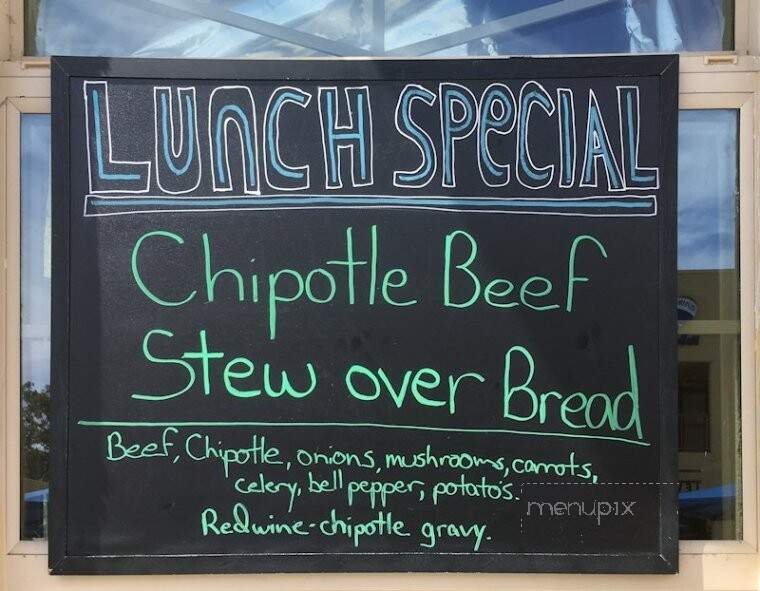 LUNCH SPECIAL
Chipotle Beef
Stew over Bread
Beef, Chipotle, onions, mushrooms, carrots,
celery, bell pepper, potato's.
Redwine-chipotle gravy.
menupix